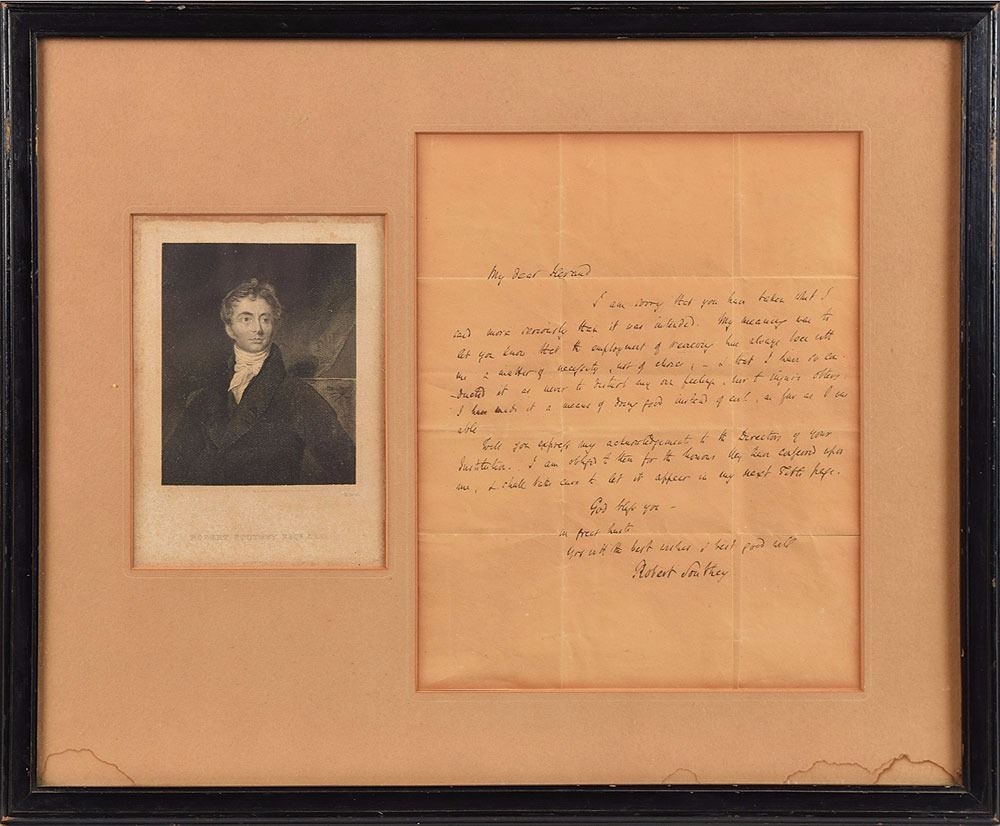 ROBERT SOUTHEY ESQR L.L.D.
My dear
I am sorry that you have taken what I
said more seriously than it was intended. My meaning was to
let you know that the employment of reviewing has always been with
me a matter of necessity, not of choice; – & that I have so con-
-ducted it as never to disturb my own feelings, nor to injure others.
I have made it a means of doing good instead of evil, as far as I was
able
Will you express my acknowledgement to the Directors of your
Institution. I am obliged to them for the honour they have conferred upon
me, & shall take care to let it appear in my next Title page.
God bless you –
in great haste
Yrs with the best wishes & best good will
Robert Southey